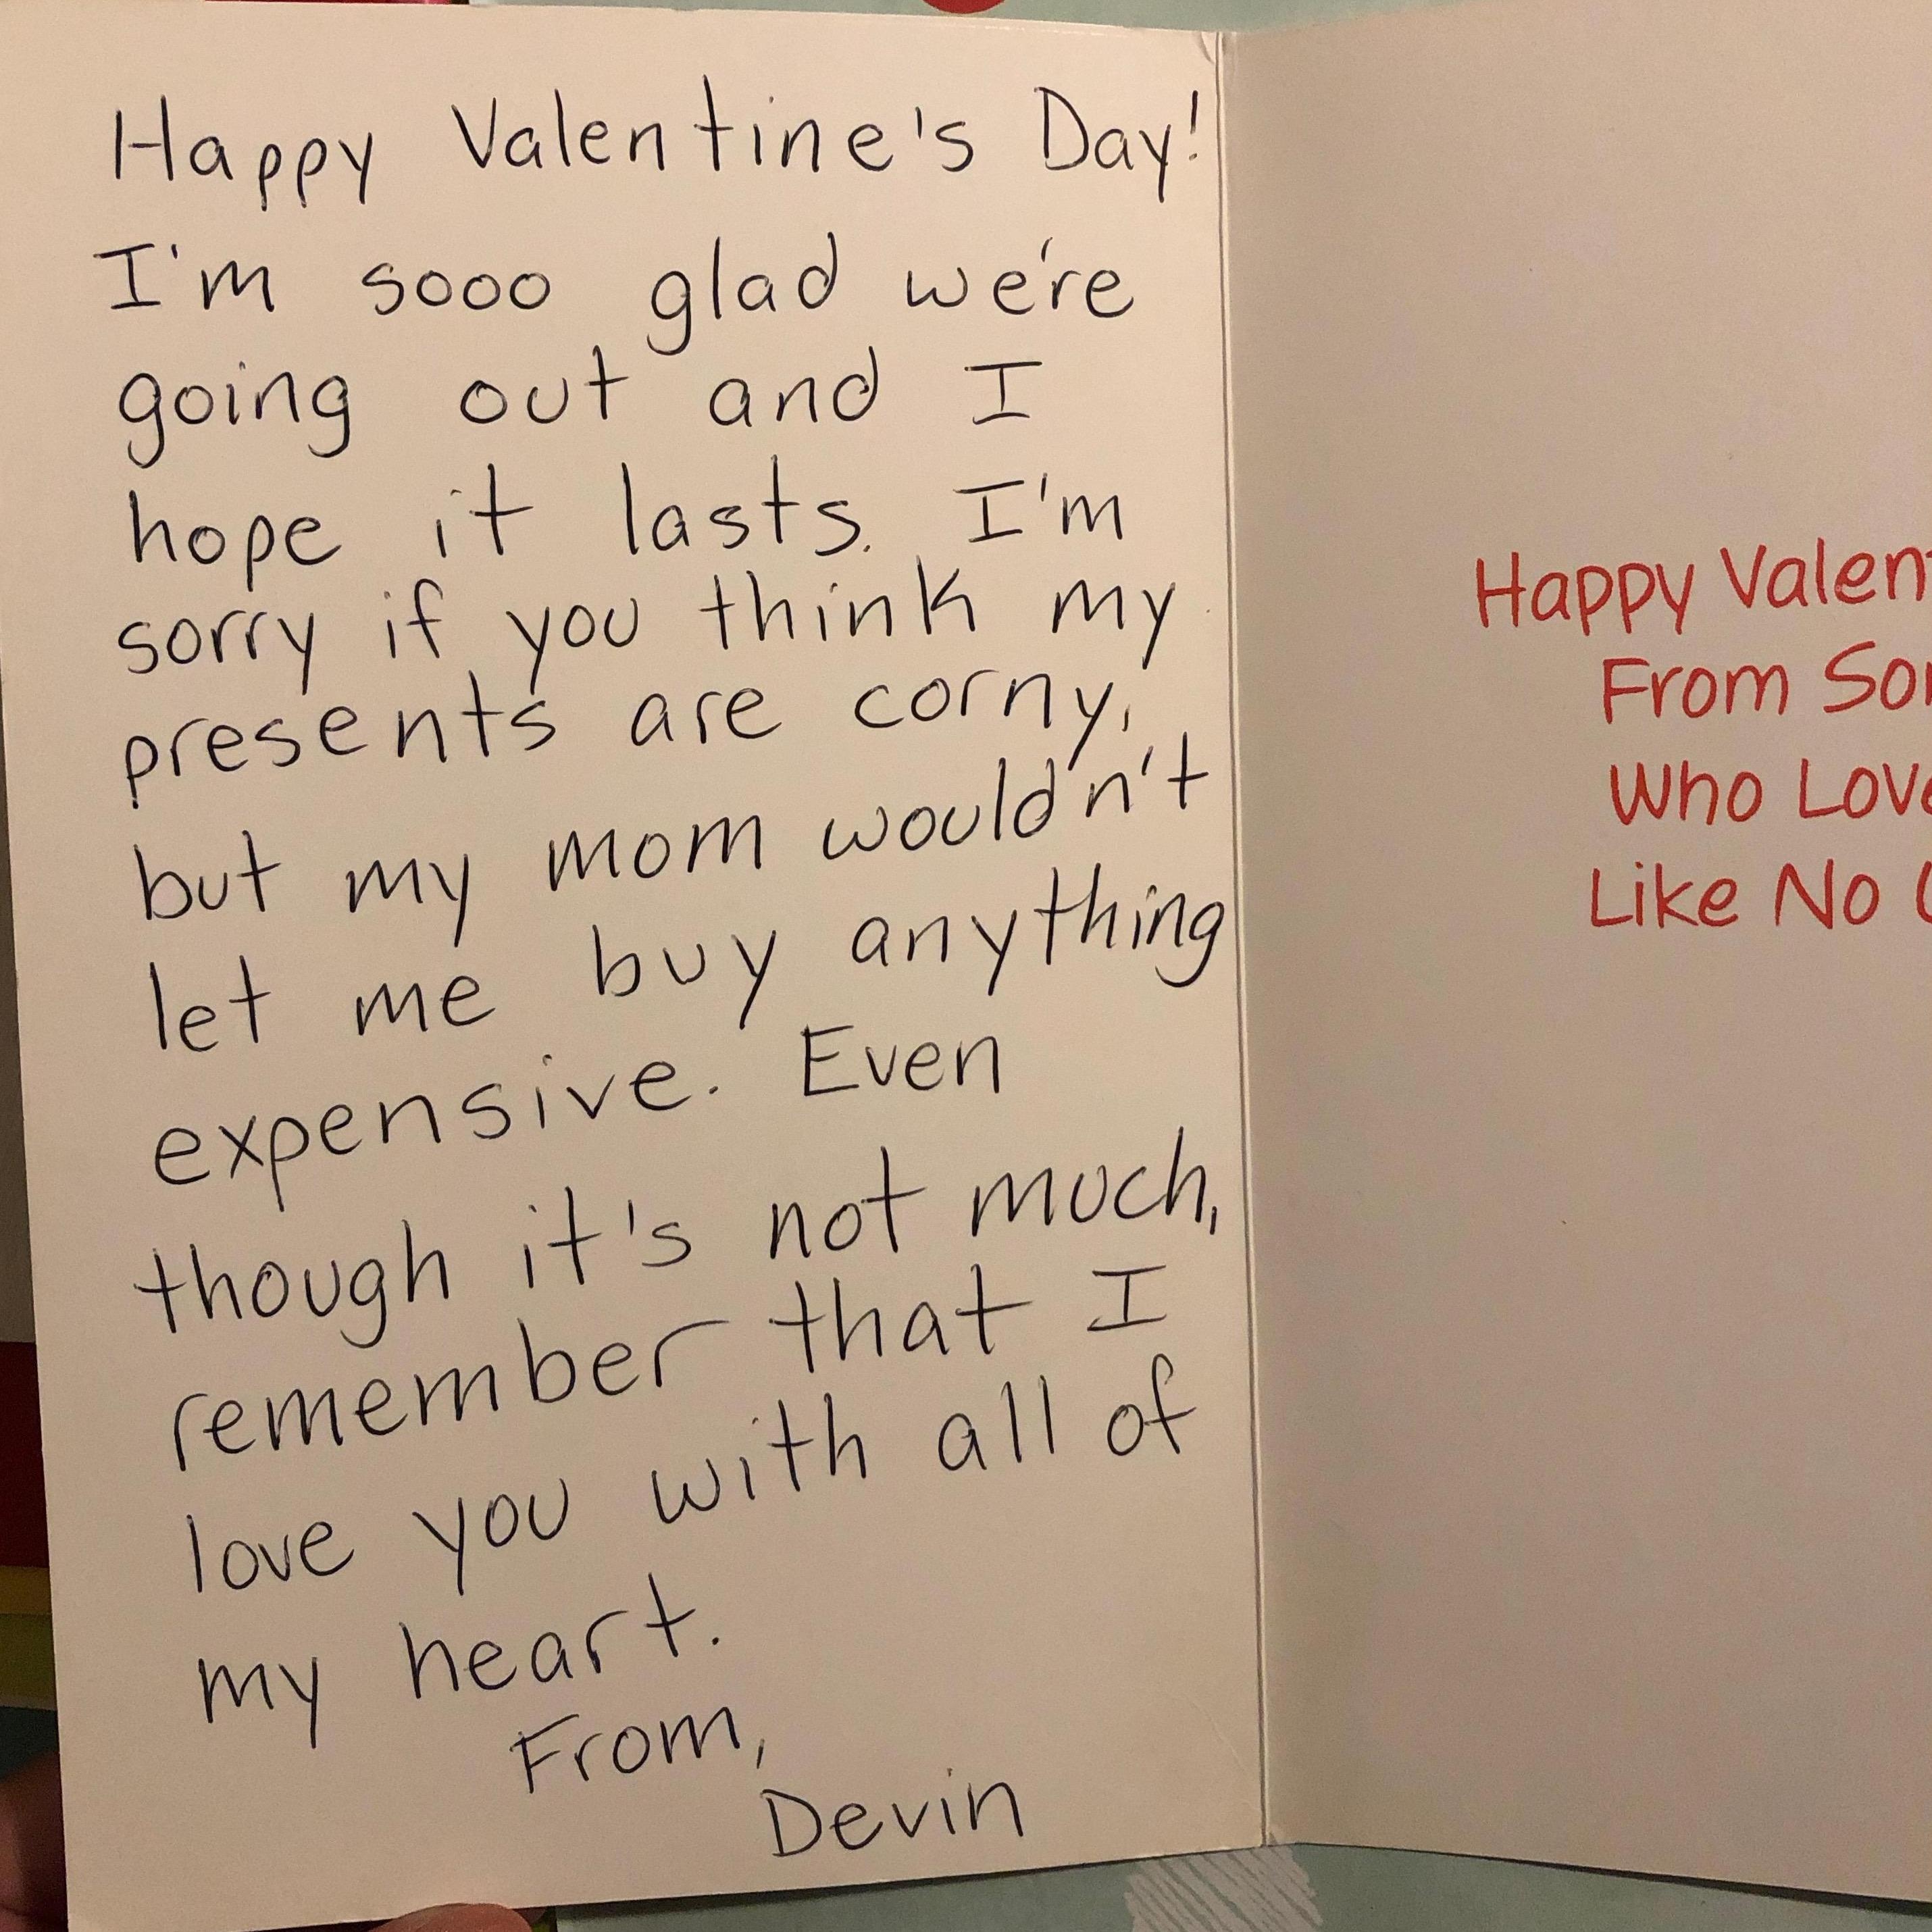 Happy Valentine's Day!
I'm sooo glad we're
going out and I
hope it lasts. I'm
sorry if you think my
presents are corny,
but my mom wouldn't
let me buy anything
expensive. Even
though it's not much,
remember that I
love you with all of
my heart.
From,
Devin
Happy
From
Who
Like No